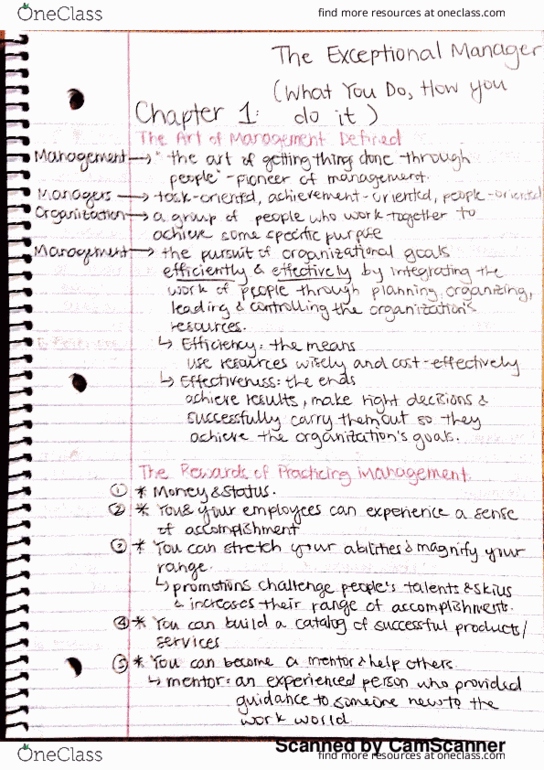 OneClass
find more resources at oneclass.com
The Exceptional Manager
(What You Do, How you
Chapter 1: do it)
The Art of Management Defined
Management → "the art of getting things done through
people" - pioneer of management.
Managers → task-oriented, achievement-oriented, people-oriented
Organization → a group of people who work together to
achieve some specific purpose
Management → the pursuit of organizational goals
efficiently & effectively by integrating the
work of people through planning, organizing,
leading & controlling the organization's
resources.
↳ Efficiency: the means
use resources wisely and cost-effectively
↳ Effectiveness: the ends
achieve results, make right decisions &
successfully carry them out so they
achieve the organization's goals.
The Rewards of Practicing Management
① * Money & Status.
② * You & your employees can experience a sense
of accomplishment
③ * You can stretch your abilities & magnify your
range.
↳ promotions challenge people's talents & skills
& increases their range of accomplishments.
④ * You can build a catalog of successful products/
services
⑤ * You can become a mentor & help others.
↳ mentor: an experienced person who provided
guidance to someone new to the
work world
Scanned by CamScanner
OneClass
find more resources at oneclass.com